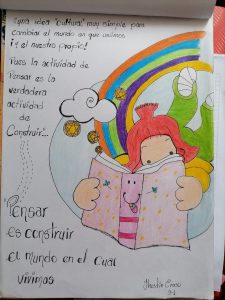 una idea "cultural" muy simple para
cambiar el mundo en que vivimos
¡y el nuestro propio!
Pues la actividad de
Pensar es la
verdadera
actividad
de
Construir"...
"Pensar
es construir
el mundo en el cual
vivimos